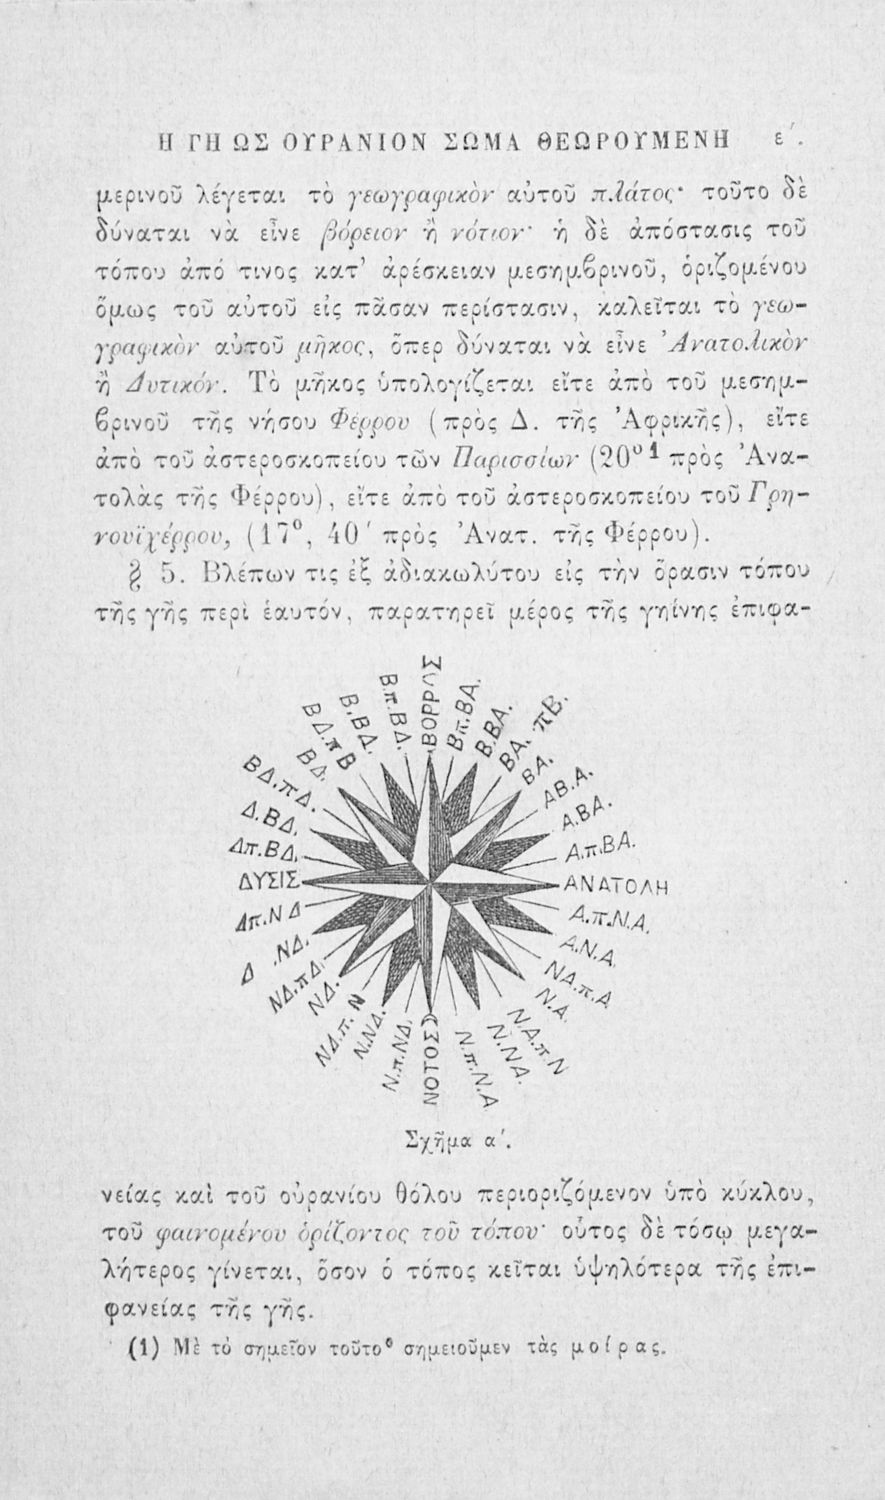 Η ΓΗ ΩΣ ΟΥΡΑΝΙΟΝ ΣΩΜΑ ΘΕΩΡΟΥΜΕΝΗ ε΄.
μερινοῦ λέγεται τὸ γεωγραφικὸν αὐτοῦ πλάτος· τοῦτο δὲ
δύναται νὰ εἶνε βόρειον ἢ νότιον· ἡ δὲ ἀπόστασις τοῦ
τόπου ἀπό τινος κατ’ ἀρέσκειαν μεσημβρινοῦ, ὁριζομένου
ὅμως τοῦ αὐτοῦ εἰς πᾶσαν περίστασιν, καλεῖται τὸ γεω-
γραφικὸν αὐτοῦ μῆκος, ὅπερ δύναται νὰ εἶνε Ἀνατολικὸν
ἢ Δυτικόν. Τὸ μῆκος ὑπολογίζεται εἴτε ἀπὸ τοῦ μεσημ-
βρινοῦ τῆς νήσου Φέρρου (πρὸς Δ. τῆς Ἀφρικῆς), εἴτε
ἀπὸ τοῦ ἀστεροσκοπείου τῶν Παρισσίων (20⁰ ¹ πρὸς Ἀνα-
τολὰς τῆς Φέρρου), εἴτε ἀπὸ τοῦ ἀστεροσκοπείου τοῦ Γρη-
νουϊχέρρου, (17⁰, 40΄ πρὸς Ἀνατ. τῆς Φέρρου).
§ 5. Βλέπων τις ἐξ ἀδιακωλύτου εἰς τὴν ὅρασιν τόπου
τῆς γῆς περὶ ἑαυτόν, παρατηρεῖ μέρος τῆς γηίνης ἐπιφα-
ΒΟΡΡΑΣ
Βπ.ΒΑ.
Β.ΒΑ.
ΒΑ. πΒ.
ΒΑ.
ΑΒ.Α.
Α.ΒΑ.
Α.π.ΒΑ.
ΑΝΑΤΟΛΗ
Α.π.Ν.Α.
Α.Ν.Α.
ΝΑ.π.Α
Ν.Α.
ΝΑ.π.Ν
Ν.ΝΑ.
Ν.π.Ν.Α
ΝΟΤΟΣ
Ν.π.ΝΔ.
Ν.ΝΔ.
ΝΔ.π.Ν
ΝΔ.
ΝΔ.πΔ.
Δ .ΝΔ.
Δπ.ΝΔ
ΔΥΣΙΣ
Δπ.ΒΔ.
Δ.ΒΔ.
ΒΔ.πΔ.
ΒΔ.
ΒΔ.πΒ
Β.ΒΔ.
Βπ.ΒΔ.
Σχῆμα α΄.
νείας καὶ τοῦ οὐρανίου θόλου περιοριζόμενον ὑπὸ κύκλου,
τοῦ φαινομένου ὁρίζοντος τοῦ τόπου· οὗτος δὲ τόσῳ μεγα-
λήτερος γίνεται, ὅσον ὁ τόπος κεῖται ὑψηλότερα τῆς ἐπι-
φανείας τῆς γῆς.
(1) Μὲ τὸ σημεῖον τοῦτο⁰ σημειοῦμεν τὰς μοίρας.